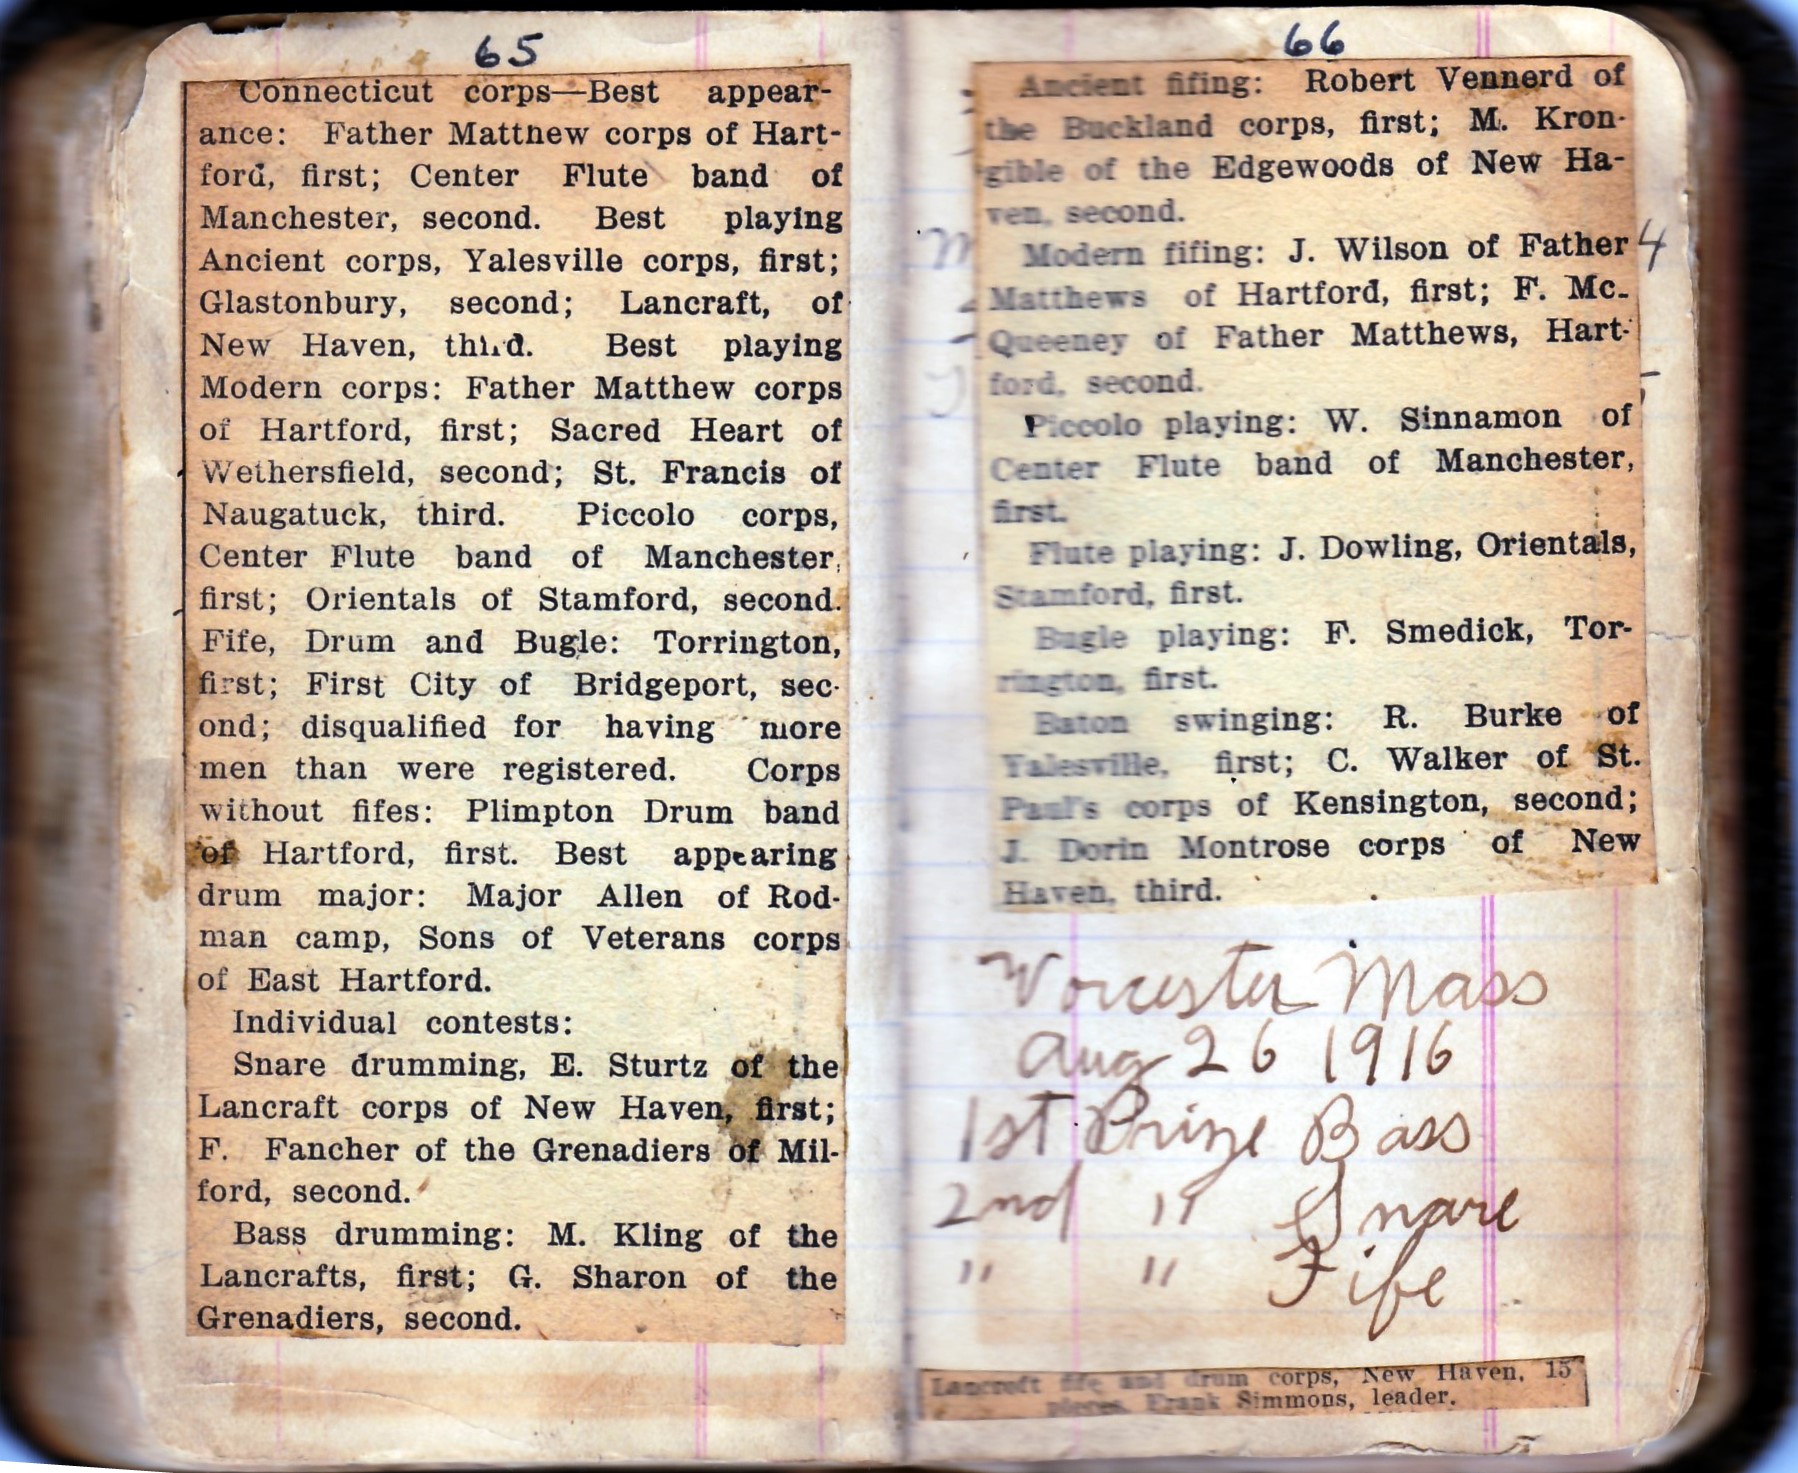 65
Connecticut corps—Best appear-
ance: Father Matthew corps of Hart-
ford, first; Center Flute band of
Manchester, second. Best playing
Ancient corps, Yalesville corps, first;
Glastonbury, second; Lancraft, of
New Haven, third. Best playing
Modern corps: Father Matthew corps
of Hartford, first; Sacred Heart of
Wethersfield, second; St. Francis of
Naugatuck, third. Piccolo corps,
Center Flute band of Manchester,
first; Orientals of Stamford, second.
Fife, Drum and Bugle: Torrington,
first; First City of Bridgeport, sec-
ond; disqualified for having more
men than were registered. Corps
without fifes: Plimpton Drum band
of Hartford, first. Best appearing
drum major: Major Allen of Rod-
man camp, Sons of Veterans corps
of East Hartford.
Individual contests:
Snare drumming, E. Sturtz of the
Lancraft corps of New Haven, first;
F. Fancher of the Grenadiers of Mil-
ford, second.
Bass drumming: M. Kling of the
Lancrafts, first; G. Sharon of the
Grenadiers, second.
66
Ancient fifing: Robert Vennerd of
the Buckland corps, first; M. Kron-
gible of the Edgewoods of New Ha-
ven, second.
Modern fifing: J. Wilson of Father
4
Matthews of Hartford, first; F. Mc-
Queeney of Father Matthews, Hart-
ford, second.
Piccolo playing: W. Sinnamon of
Center Flute band of Manchester,
first.
Flute playing: J. Dowling, Orientals,
Stamford, first.
Bugle playing: F. Smedick, Tor-
rington, first.
Baton swinging: R. Burke of
Yalesville, first; C. Walker of St.
Paul's corps of Kensington, second;
J. Dorin Montrose corps of New
Haven, third.
Worcester Mass
Aug 26 1916
1st Prize Bass
2nd " Snare
" " Fife
Lancroft fife and drum corps, New Haven, 15
pieces. Frank Simmons, leader.